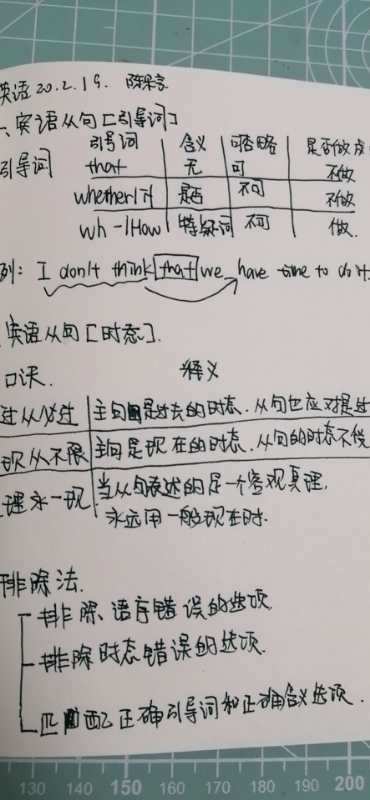 英语20.2.19.
一、宾语从句[引导词]
引导词 引导词 含义 可否省略 是否做成
that 无 可 不做
whether/if 是否 不可 不做
wh-/How 特殊疑问词 不可 做.
例: I don't think that we have time to do it
宾语从句[时态].
口诀. 释义
过从必过 主句是过去的时态.从句也应对是过
现从不限 主句是现在的时态.从句的时态不
理永一现 当从句表述的是一个客观真理,
永远用一般现在时.
排除法.
排除、语序错误的选项
排除时态错误的选项.
匹配正确引导词和正确含义选项.
130 140 150 160 170 180 190 200